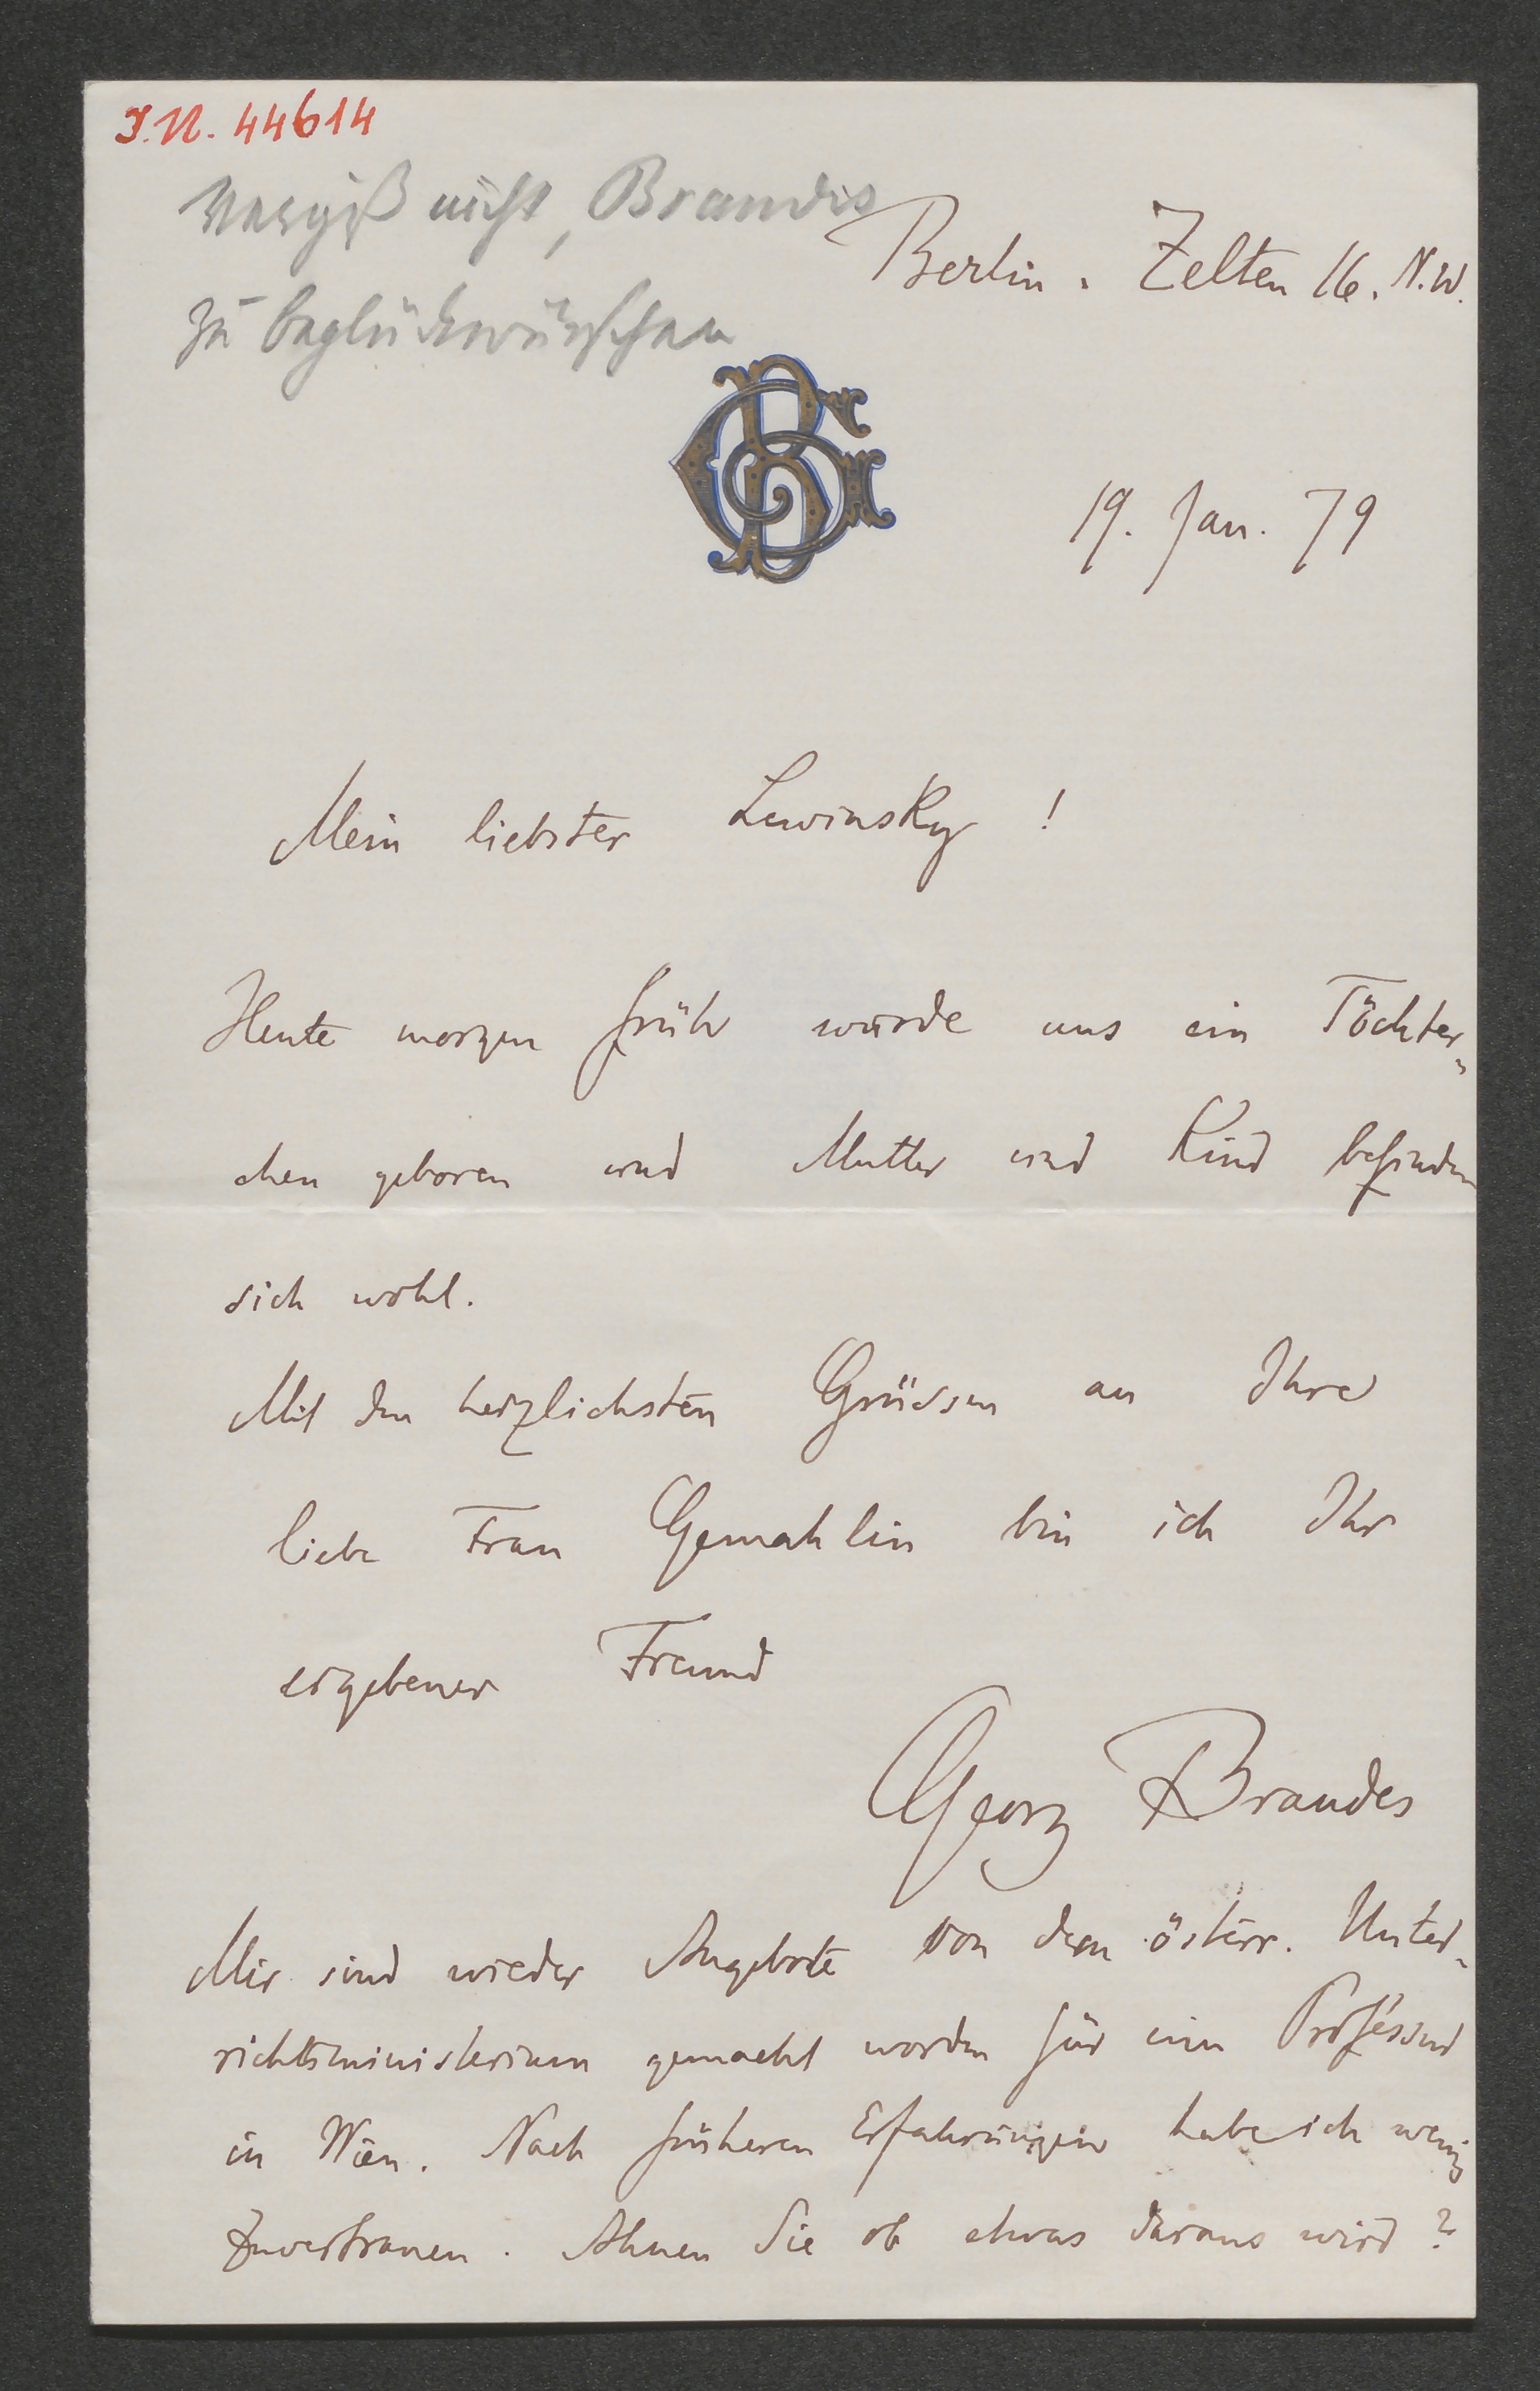 I.N. 44614
Vergiß nicht, Brandes
zu beglückwünschen
Berlin. Zelten 16. N.W.
GB
19. Jan. 79
Mein liebster Lewinsky!
Heute morgen früh wurde uns ein Töchter-
chen geboren und Mutter und Kind befinden
sich wohl.
Mit den herzlichsten Grüssen an Ihre
liebe Frau Gemahlin bin ich Ihr
ergebener Freund
Georg Brandes
Mir sind wieder Angebote von dem österr. Unter-
richtsministerium gemacht worden für eine Professur
in Wien. Nach früheren Erfahrungen habe ich wenig
Zuvertrauen. Ahnen Sie ob etwas daraus wird?